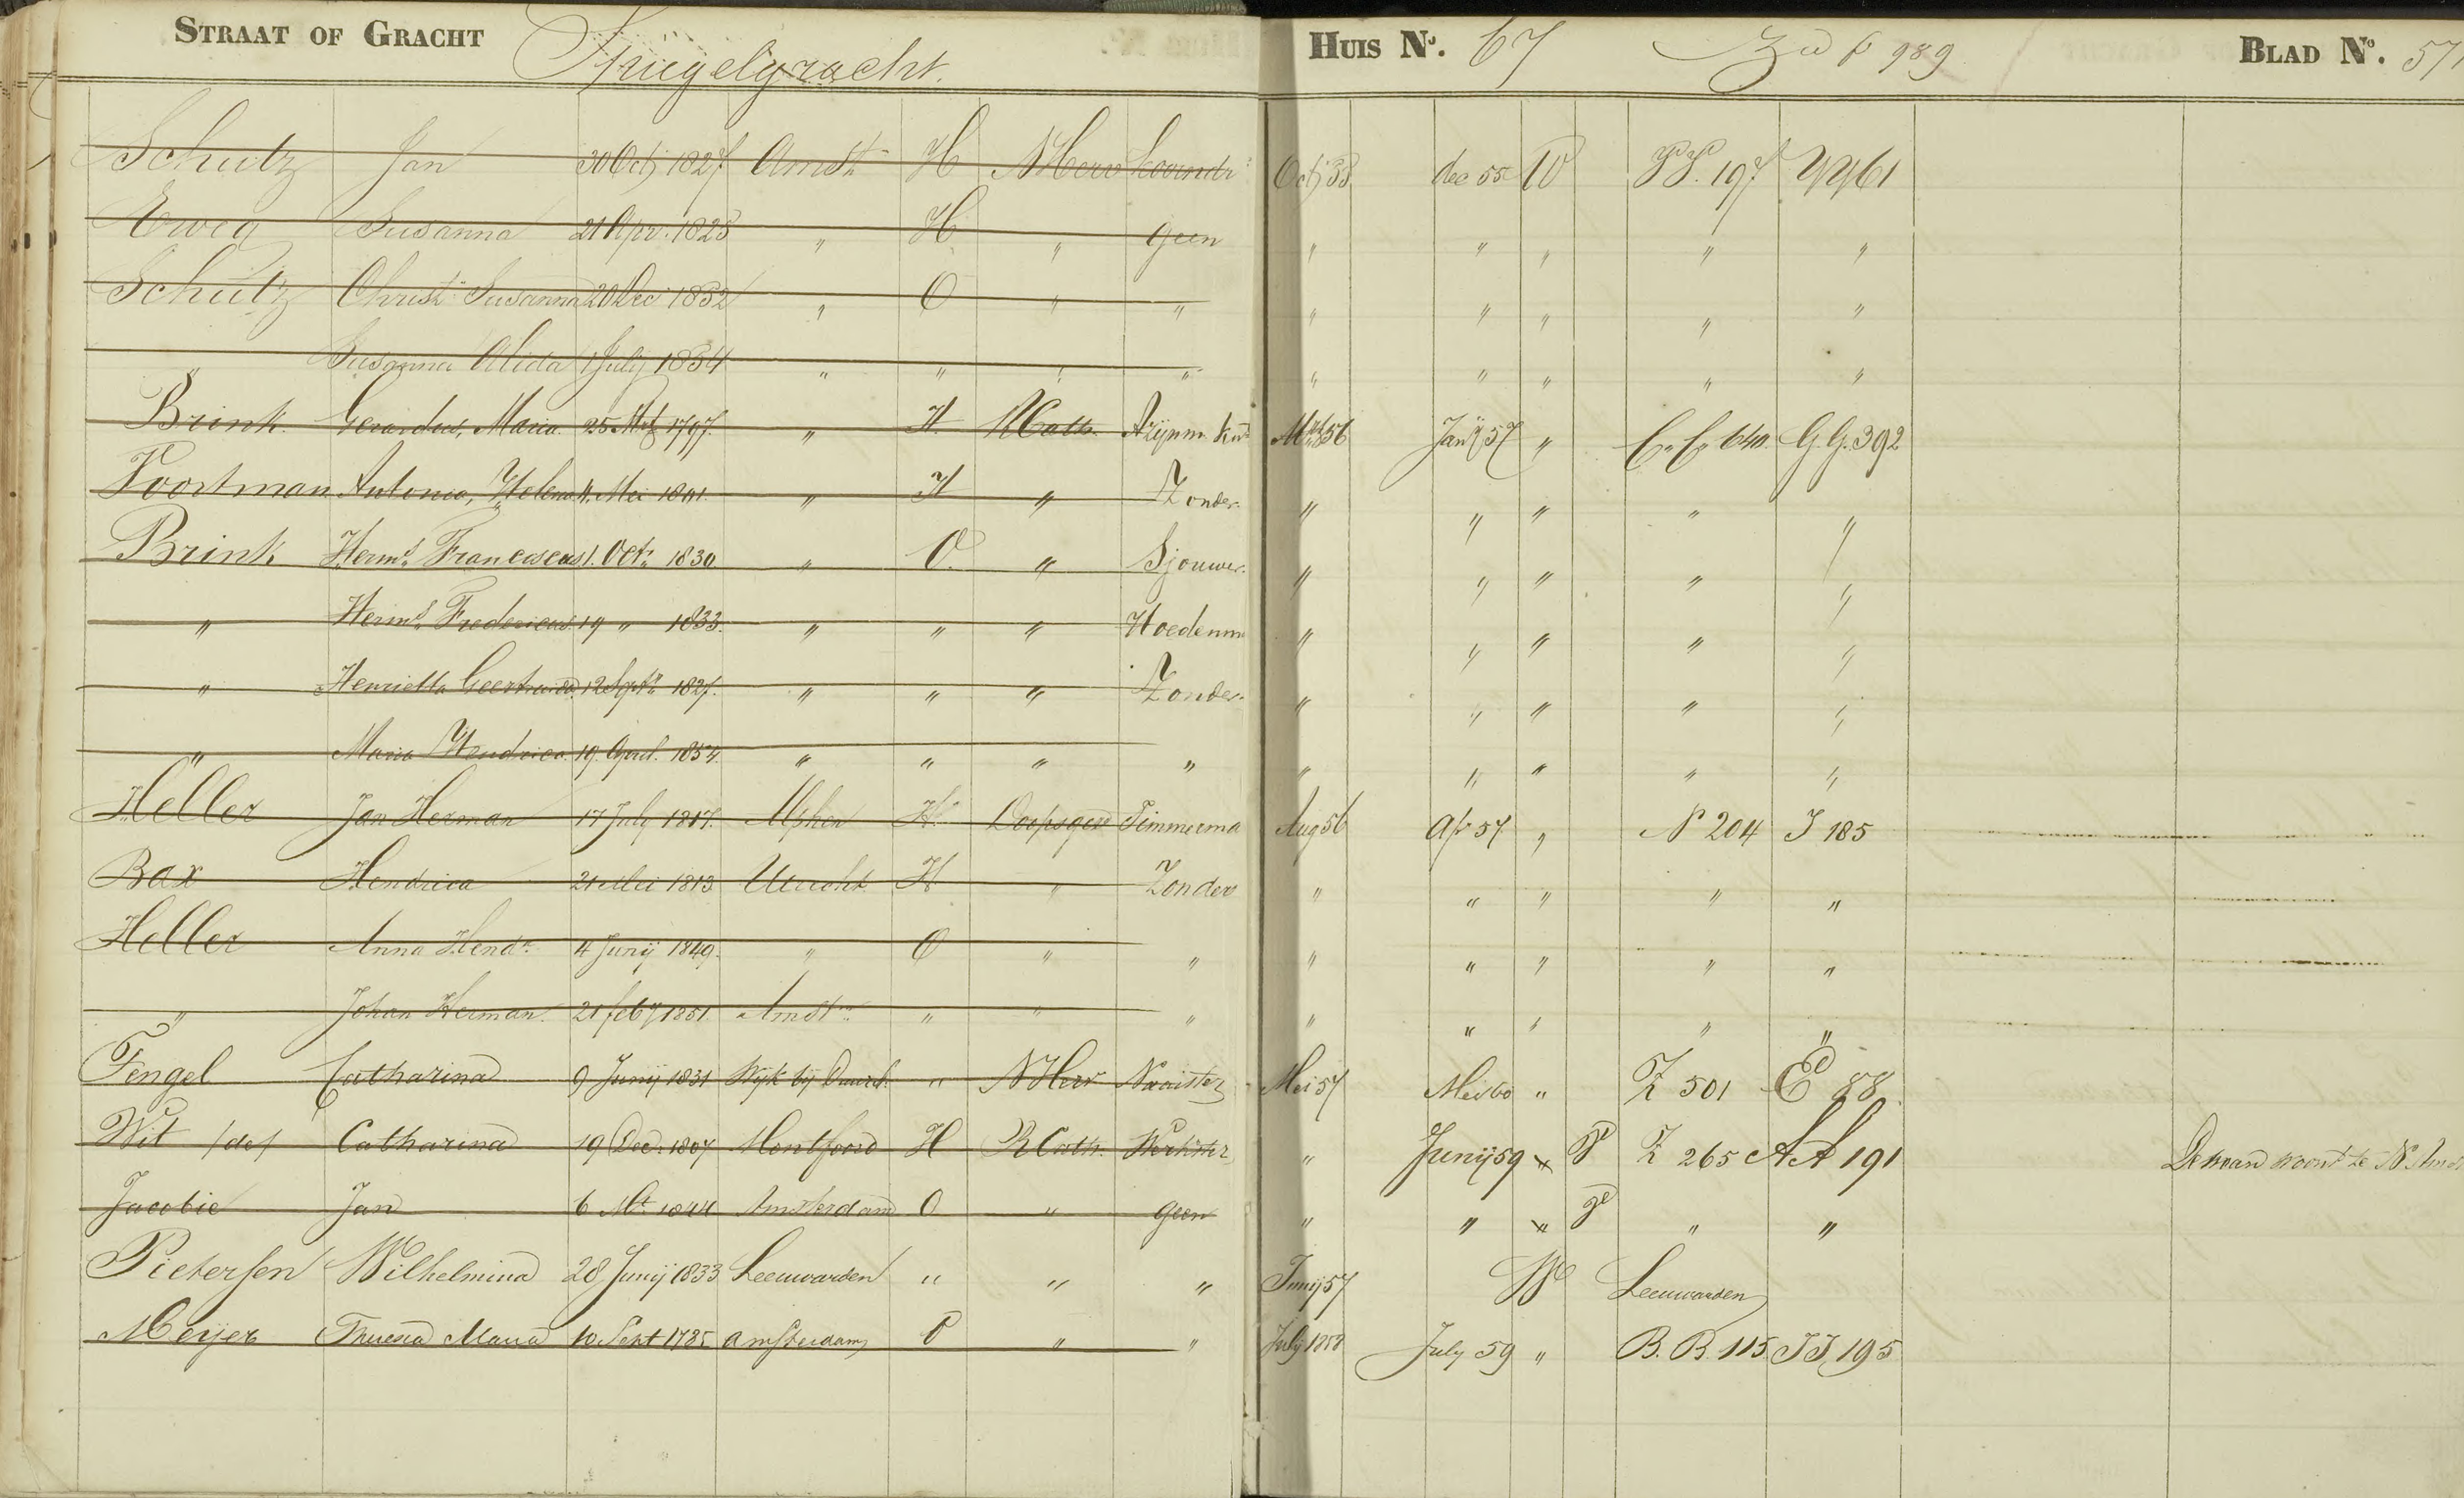 STRAAT OF GRACHT HUIS No. 67 BLAD No. 571
Schutz Jan 30 Octj 1827 Amstm H NHerv Octj 55 dec 55 W PP. 197 YY61
Susanna 21 Apr. 1828 " H " geen " " " " "
Schutz Christa Susanna 20 Dec 1852 " O " " " " " " "
" Susanna Alida 1 July 1854 " " " " " " " " "
Brink. Gerardus, Maria. 25 Mrt 1797. " H. RCath. Mrt 56 Janij 57 " C.C. 640. G.G. 392
Voortman Antonia, Helena 11. Mei 1801. " H " Zonder. " " " " "
Brink Herms. Franciscus 1. Octr. 1830 " O. " Sjouwer. " " " " "
" Herms. Fredericus. 19 " 1833. " " " Hoedenm " " " " "
" Henrietta Geertruida. 12 Septr. 1827. " " " Zonder. " " " " "
" Maria Hendrica. 19. April. 1854. " " " " " " " " "
Heller Jan Herman 17 July 1817. Alphen H. Doopsgez Timmerma Aug 56 Apr 57 " N 204 J 185
Bax Hendrica 21 Mei 1813 Utrecht H " Zonder " " " " "
Heller Anna Hendr. 4 Junij 1849. " O " " " " " " "
" Johan Herman. 21 feby 1851 Amstm " " " " " " " "
Tengel Catharina 9 Junij 1831 Wijk bij Duurst. " NHerv Naaister Mei 57 Mei 60 " Z 501 E 88
Wit /de/ Catharina 19 Dec. 1807 Montfoord H RCath. Werkster " Junij 59 " P Z 265 AA 191 De man woont te N. Amst
Jacobie Jan 6 Mt 1844 Amsterdam O " geen " " " P " "
Pietersen Wilhelmina 28 Junij 1833 Leeuwarden " " " Junij 57 W Leeuwarden
Meijer Theresia Maria 10 Sept 1785 Amsterdam O " " July 1858 July 59 " B.B. 115 JJ, 195